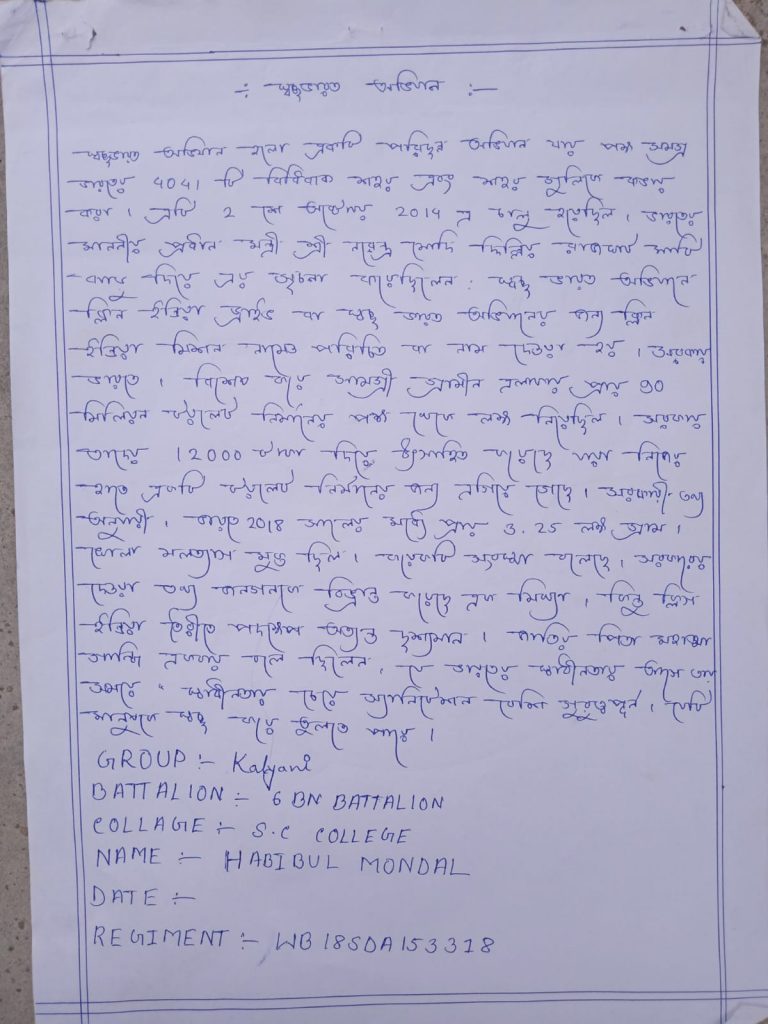 -: স্বচ্ছভারত অভিযান :-
স্বচ্ছভারত অভিযান হলো একটি পরিচ্ছন্ন অভিযান যার লক্ষ্য সমগ্র
ভারতের 4041 টি বিধিবদ্ধ শহর এবং শহর গুলিকে কভার
করা। এটি 2 শে অক্টোবর 2014 এ চালু হয়েছিল। ভারতের
মাননীয় প্রধান মন্ত্রী শ্রী নরেন্দ্র মোদি দিল্লির রাজঘাট
ঝাড়ু দিয়ে এর সূচনা করেছিলেন। স্বচ্ছ ভারত অভিযানে
ক্লিন ইন্ডিয়া ড্রাইভ বা স্বচ্ছ ভারত অভিযানের জন্য ক্লিন
ইন্ডিয়া মিশন নামেও পরিচিত বা নাম দেওয়া হয়। সরকার
ভারতে। বিশেষ করে গ্রামীন এলাকায় প্রায় 90
মিলিয়ন টয়লেট নির্মানের লক্ষ নিয়েছিল। সরকার
তাদের 12000 টাকা দিয়ে উৎসাহিত করেছে যারা নিজের
হাতে একটি টয়লেট নির্মানের জন্য এগিয়ে গেছে। সরকারী তথ্য
অনুযায়ী। ভারতে 2018 সালের মধ্যে প্রায় 3.25 লক্ষ গ্রাম।
খোলা মলত্যাগ মুক্ত ছিল। কয়েকটি সংস্থা বলেছে। সরকারের
দেওয়া তথ্য জনগনকে বিভ্রান্ত করেছে এবং মিথ্যা। কিন্তু ক্লিন
ইন্ডিয়া তৈরীতে পদক্ষেপ অত্যন্ত দৃশ্যমান। জাতির পিতা মহাত্মা
গান্ধি একবার বলে ছিলেন, যে ভারতের স্বাধীনতার আগে তার
সময়ে " স্বাধীনতার চেয়ে স্যানিটেশন বেশি গুরুত্বপূর্ন। যেটি
মানুষকে স্বচ্ছ করে তুলতে পারে।
GROUP :- Kalyani
BATTALION :- 6 BN BATTALION
COLLAGE :- S.C COLLEGE
NAME :- HABIBUL MONDAL
DATE :-
REGIMENT :- WB18SDA153318